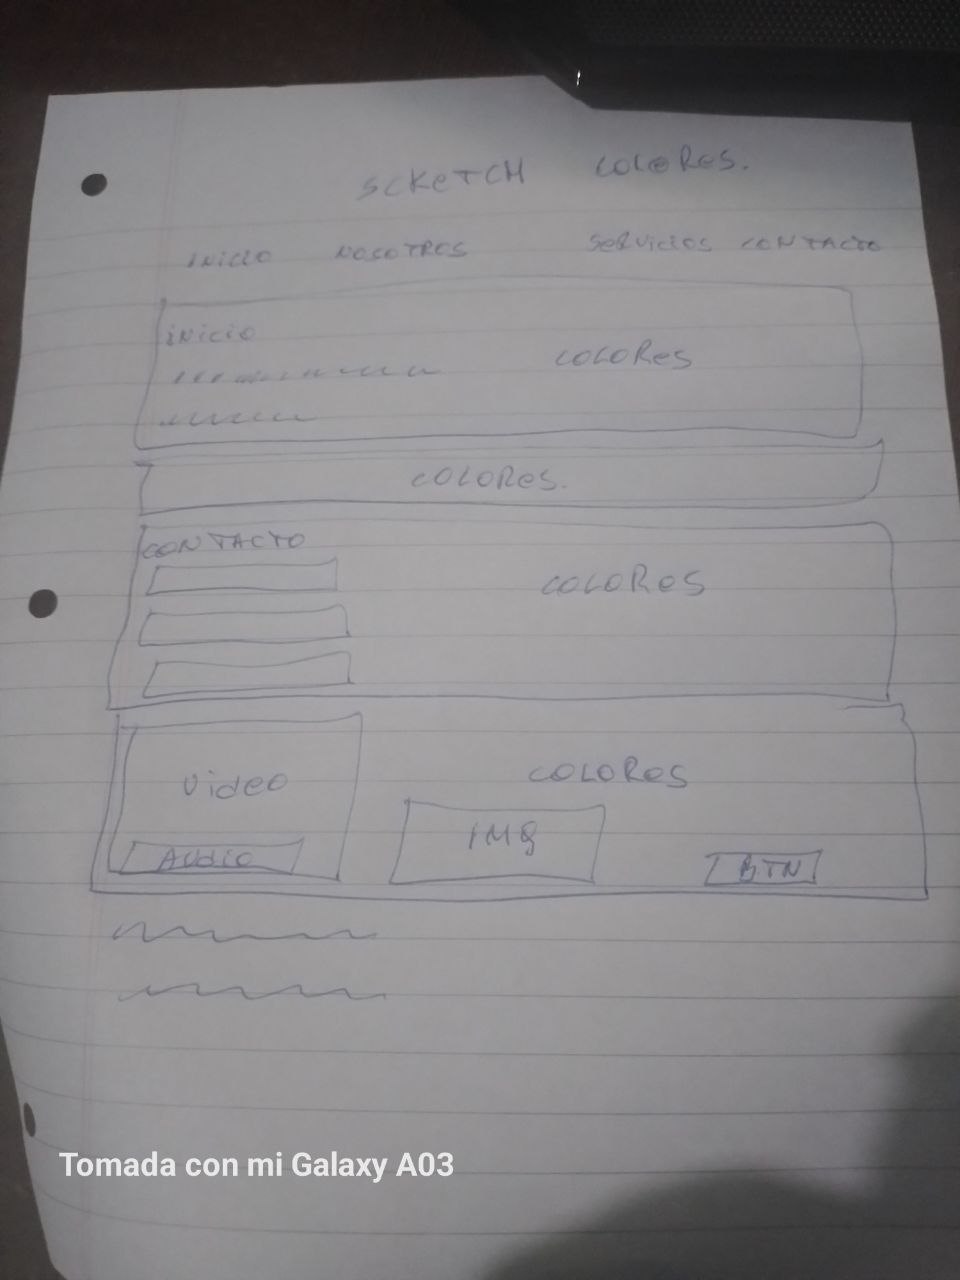 SCKETCH COLORES.
INICIO NOSOTROS SERVICIOS CONTACTO
INICIO
COLORES
COLORES.
CONTACTO
COLORES
Video
COLORES
IMG
AUDIO
BTN
Tomada con mi Galaxy A03